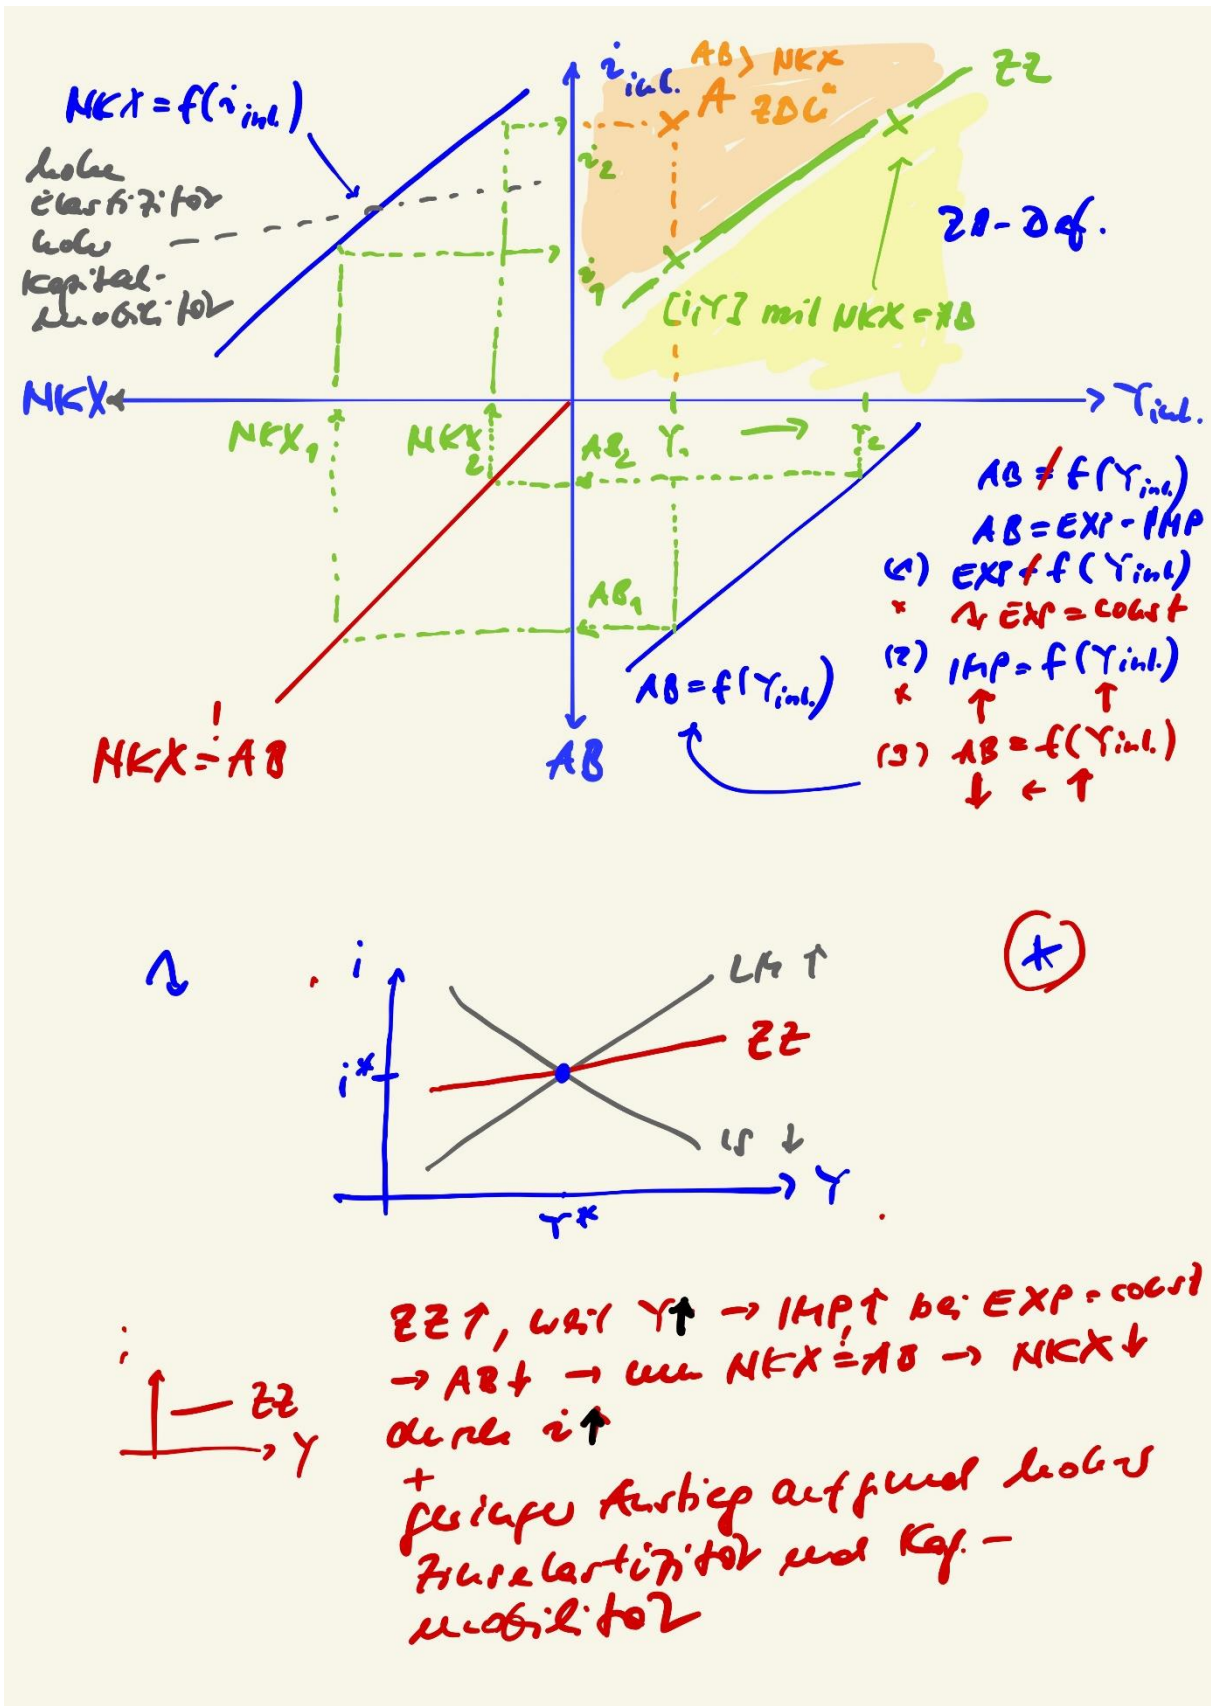 NKX = f(i inl.)
hohe
Elastizität
hohe
Kapital-
mobilität
i inl.
AB > NKX
A ZBÜ
ZZ
i2
i1
ZB-Def.
[i,Y] mit NKX = AB
NKX
Y inl.
NKX1
NKX2
AB2
Y1 → Y2
AB1
AB = f(Y inl.)
NKX != AB
AB
AB ≠ f(Y inl.)
AB = EXP - IMP
(1) EXP ≠ f(Y inl.)
* EXP = const
(2) IMP = f(Y inl.)
* ↑ ↑
(3) AB = f(Y inl.)
↓ ← ↑
i
LM ↑
*
ZZ
i*
IS ↓
Y
Y*
ZZ↑, weil Y↑ → IMP↑ bei EXP = const
→ AB↓ → um NKX != AB → NKX↓
durch i↑
+
geringer Anstieg aufgrund hoher
Zinselastizität und Kap.-
mobilität
i
ZZ
Y